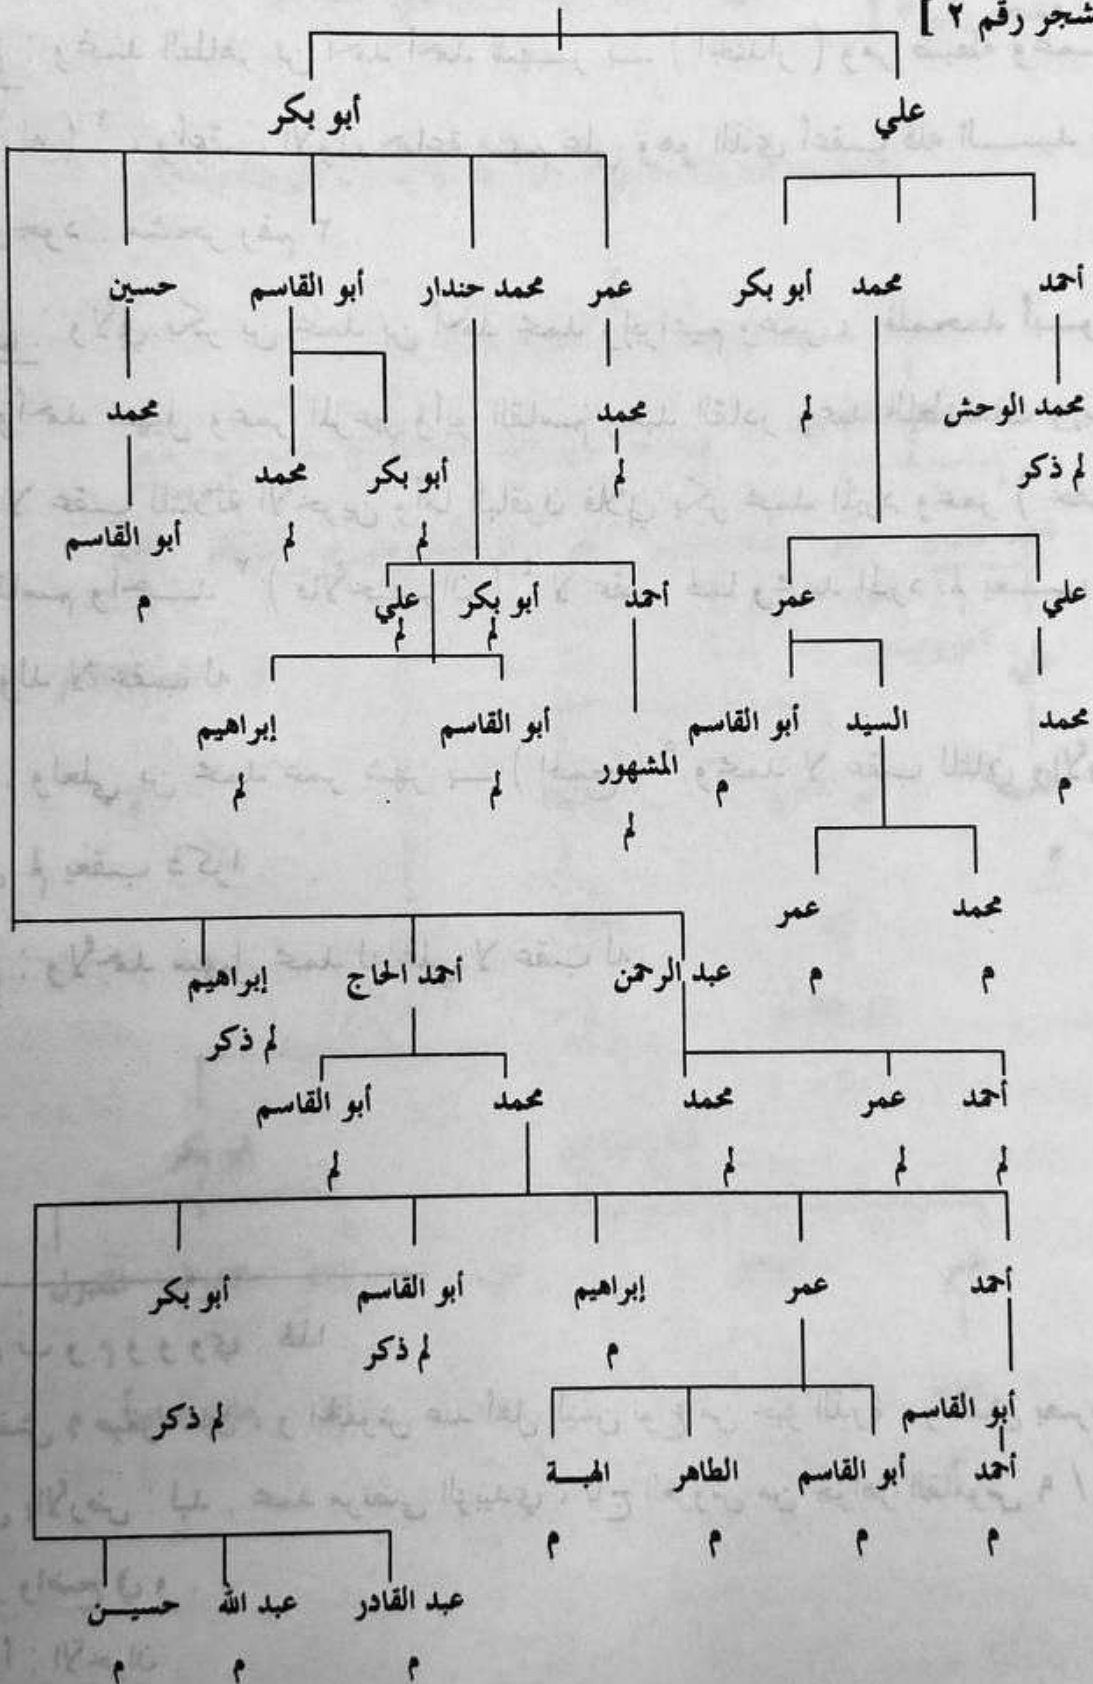 شجر رقم ٢ ]
علي أبو بكر
أحمد محمد أبو بكر عمر محمد حندار أبو القاسم حسين
محمد الوحش لم محمد محمد
لم ذكر لم أبو بكر محمد
لم لم أبو القاسم
علي عمر أحمد أبو بكر علي م
لم لم
محمد السيد أبو القاسم المشهور أبو القاسم إبراهيم
م م لم لم لم
محمد عمر
م م
عبد الرحمن أحمد الحاج إبراهيم
لم ذكر
أحمد عمر محمد محمد أبو القاسم
لم لم لم لم
أحمد عمر إبراهيم أبو القاسم أبو بكر
م لم ذكر
أبو القاسم لم ذكر
أحمد أبو القاسم الطاهر الهبـة
م م م م
عبد القادر عبد الله حسيـن
م م م